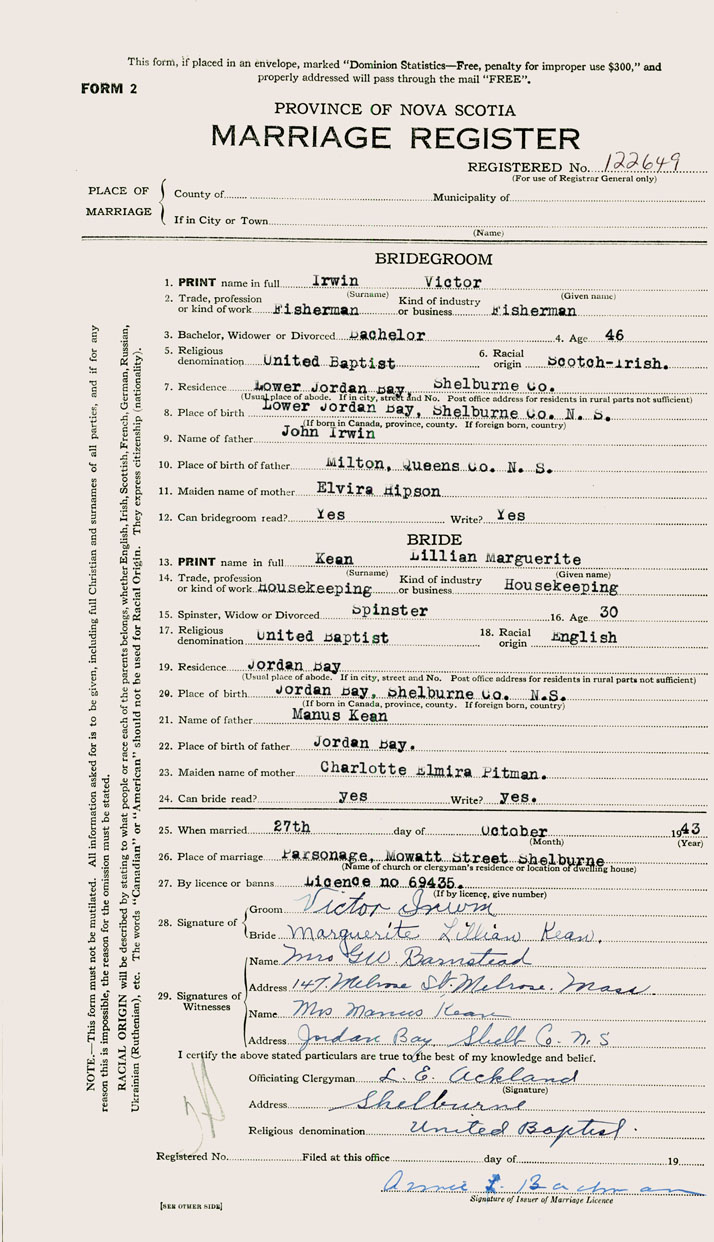 This form, if placed in an envelope, marked "Dominion Statistics—Free, penalty for improper use $300," and
properly addressed will pass through the mail "FREE".
FORM 2
PROVINCE OF NOVA SCOTIA
MARRIAGE REGISTER
REGISTERED No. 122649
(For use of Registrar General only)
PLACE OF MARRIAGE
County of Municipality of
If in City or Town
(Name)
BRIDEGROOM
1. PRINT name in full Irwin Victor
(Surname) (Given name)
2. Trade, profession or kind of work Fisherman Kind of industry or business Fisherman
3. Bachelor, Widower or Divorced Bachelor 4. Age 46
5. Religious denomination United Baptist 6. Racial origin Scotch-Irish.
7. Residence Lower Jordan Bay, Shelburne Co.
(Usual place of abode. If in city, street and No. Post office address for residents in rural parts not sufficient)
8. Place of birth Lower Jordan Bay, Shelburne Co. N. S.
(If born in Canada, province, county. If foreign born, country)
9. Name of father John Irwin
10. Place of birth of father Milton, Queens Co. N. S.
11. Maiden name of mother Elvira Hipson
12. Can bridegroom read? Yes Write? Yes
BRIDE
13. PRINT name in full Kean Lillian Marguerite
(Surname) (Given name)
14. Trade, profession or kind of work Housekeeping Kind of industry or business Housekeeping
15. Spinster, Widow or Divorced Spinster 16. Age 30
17. Religious denomination United Baptist 18. Racial origin English
19. Residence Jordan Bay
(Usual place of abode. If in city, street and No. Post office address for residents in rural parts not sufficient)
20. Place of birth Jordan Bay, Shelburne Co. N.S.
(If born in Canada, province, county. If foreign born, country)
21. Name of father Manus Kean
22. Place of birth of father Jordan Bay.
23. Maiden name of mother Charlotte Elmira Pitman.
24. Can bride read? yes Write? yes.
25. When married 27th day of October 1943
(Month) (Year)
26. Place of marriage Parsonage, Mowatt Street Shelburne
(Name of church or clergyman's residence or location of dwelling house)
27. By licence or banns Licence no 69435.
(If by licence, give number)
28. Signature of
Groom Victor Irwin
Bride Marguerite Lillian Kean.
29. Signatures of Witnesses
Name Mrs G.W. Barnstead
Address 147 Melrose St. Melrose. Mass.
Name Mrs Manus Kean
Address Jordan Bay Shelb Co. N. S
I certify the above stated particulars are true to the best of my knowledge and belief.
Officiating Clergyman L. E. Ackland
(Signature)
Address Shelburne
Religious denomination United Baptist.
Registered No. Filed at this office day of 19
Annie L. Bachman
Signature of Issuer of Marriage Licence
[SEE OTHER SIDE]
NOTE.—This form must not be mutilated. All information asked for is to be given, including full Christian and surnames of all parties, and if for any
reason this is impossible, the reason for the omission must be stated.
RACIAL ORIGIN will be described by stating to what people or race each of the parents belongs, whether English, Irish, Scottish, French, German, Russian,
Ukrainian (Ruthenian), etc. The words "Canadian" or "American" should not be used for Racial Origin. They express citizenship (nationality).